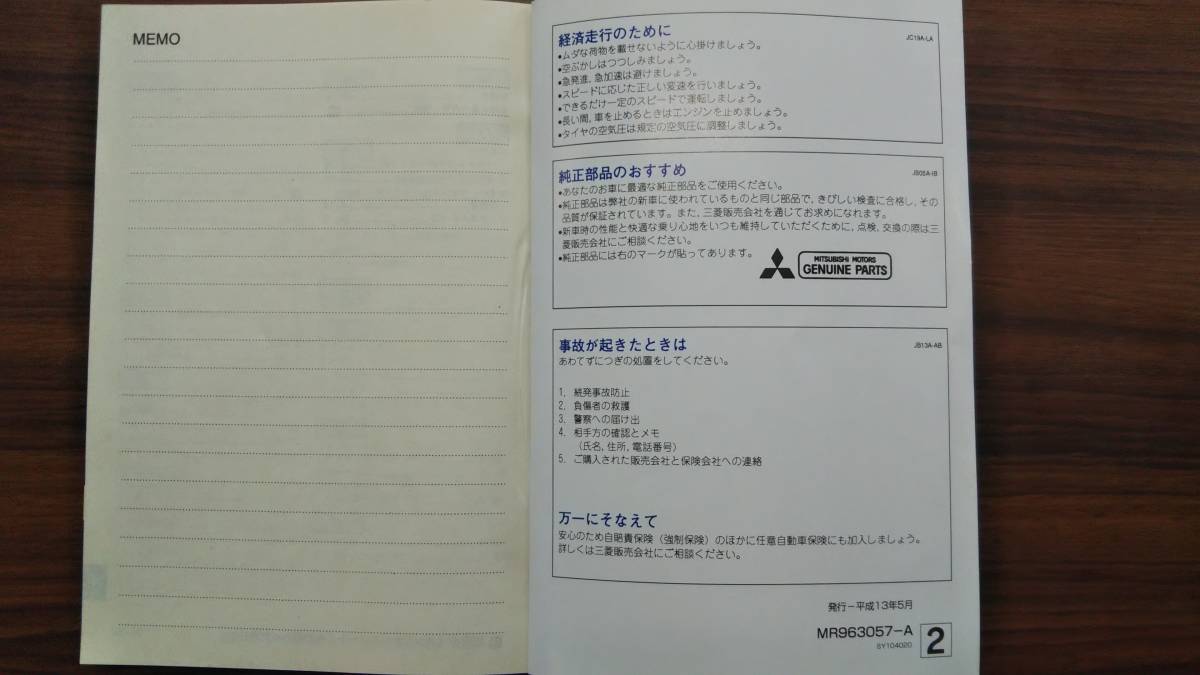 MEMO
経済走行のために
JC19A-LA
●ムダな荷物を載せないように心掛けましょう。
●空ぶかしはつつしみましょう。
●急発進,急加速は避けましょう。
●スピードに応じた正しい変速を行いましょう。
●できるだけ一定のスピードで運転しましょう。
●長い間,車を止めるときはエンジンを止めましょう。
●タイヤの空気圧は規定の空気圧に調整しましょう。
純正部品のおすすめ
JB05A-IB
●あなたのお車に最適な純正部品をご使用ください。
●純正部品は弊社の新車に使われているものと同じ部品で,きびしい検査に合格し,その
品質が保証されています。また,三菱販売会社を通じてお求めになれます。
●新車時の性能と快適な乗り心地をいつも維持していただくために,点検,交換の際は三
菱販売会社にご相談ください。
●純正部品には右のマークが貼ってあります。
MITSUBISHI MOTORS
GENUINE PARTS
事故が起きたときは
JB13A-AB
あわてずにつぎの処置をしてください。
1. 続発事故防止
2. 負傷者の救護
3. 警察への届け出
4. 相手方の確認とメモ
（氏名,住所,電話番号）
5. ご購入された販売会社と保険会社への連絡
万一にそなえて
安心のため自賠責保険（強制保険）のほかに任意自動車保険にも加入しましょう。
詳しくは三菱販売会社にご相談ください。
発行−平成13年5月
MR963057−A
SY104020
2